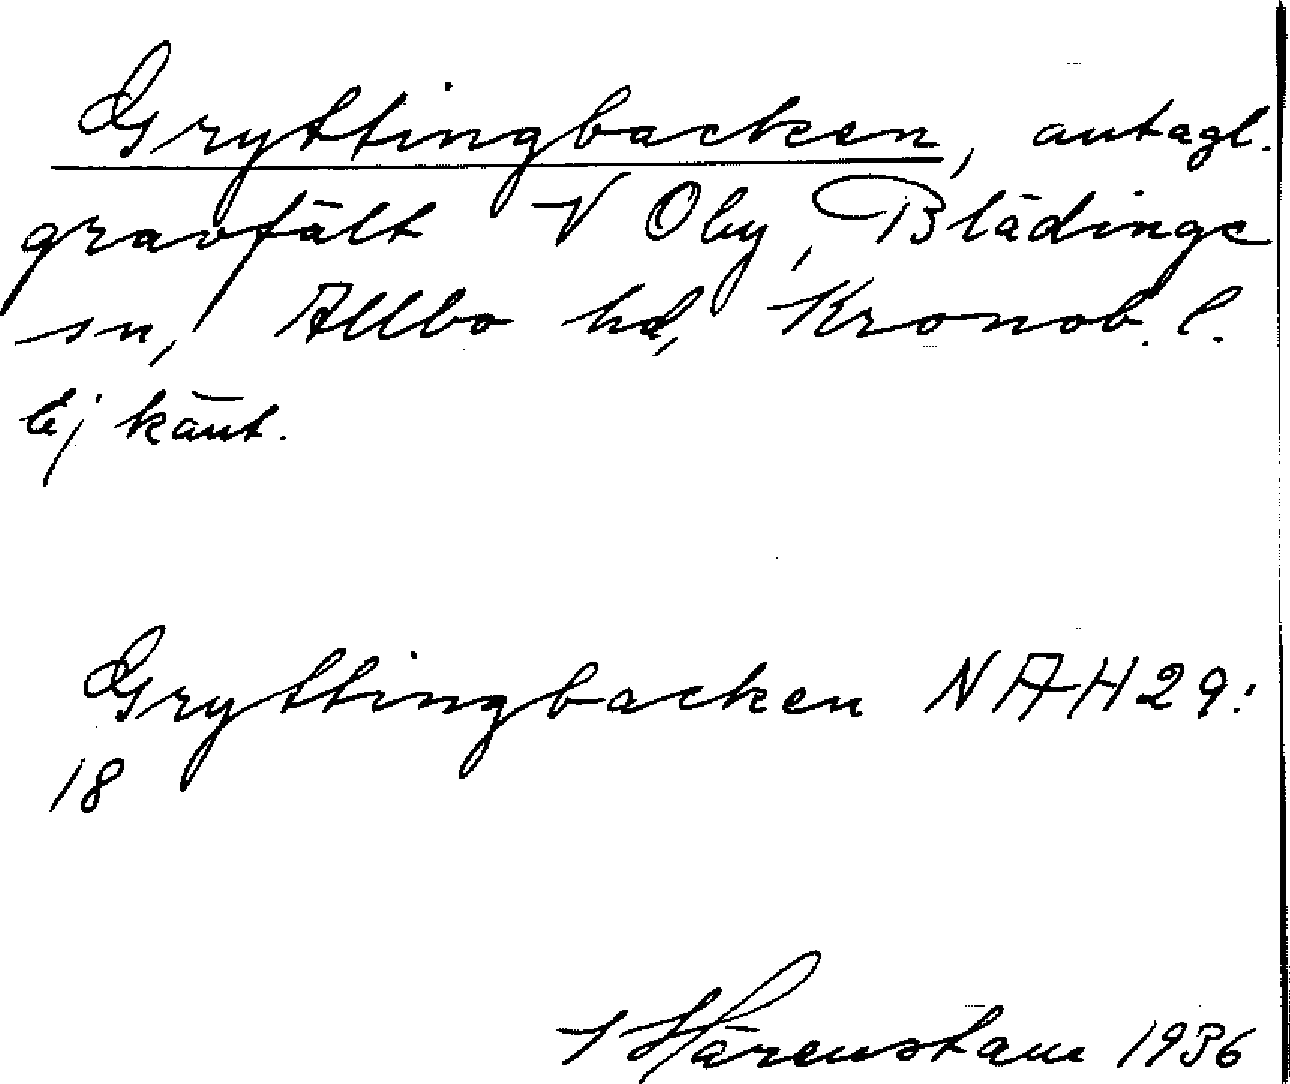 Gryttingbacken, antagl.
gravfält V Oby, Blädinge
sn, Allbo hd, Kronob. l.
Ej känt.
Gryttingbacken NAH29:
18
I Härenstam 1936